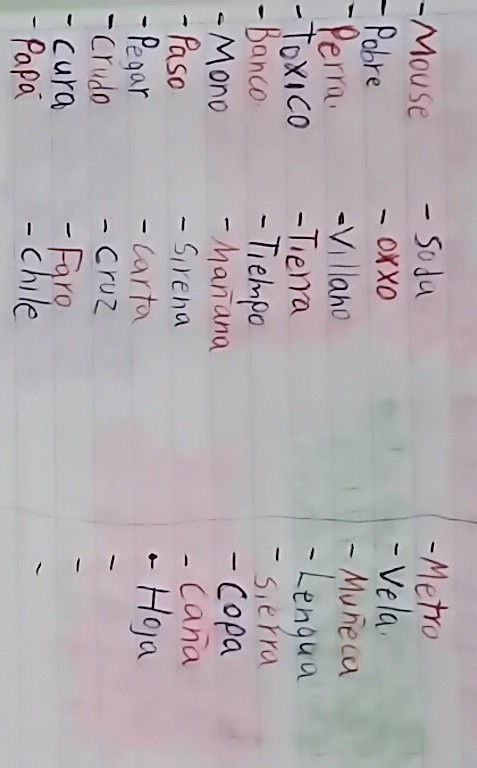 - Mouse
- Pobre
- Perra.
- TOXICO
- Banco.
- Mono
- Paso
- Pegar
- Crudo
- Cura
- Papá
- Soda
- OXXO
- Villano
- Tierra
- Tiempo
- Mañana
- Sirena
- Carta
- Cruz
- Faro
- Chile
- Metro
- Vela.
- Muñeca
- Lengua
- Sierra
- Copa
- Caña
- Hoja
-
-
-